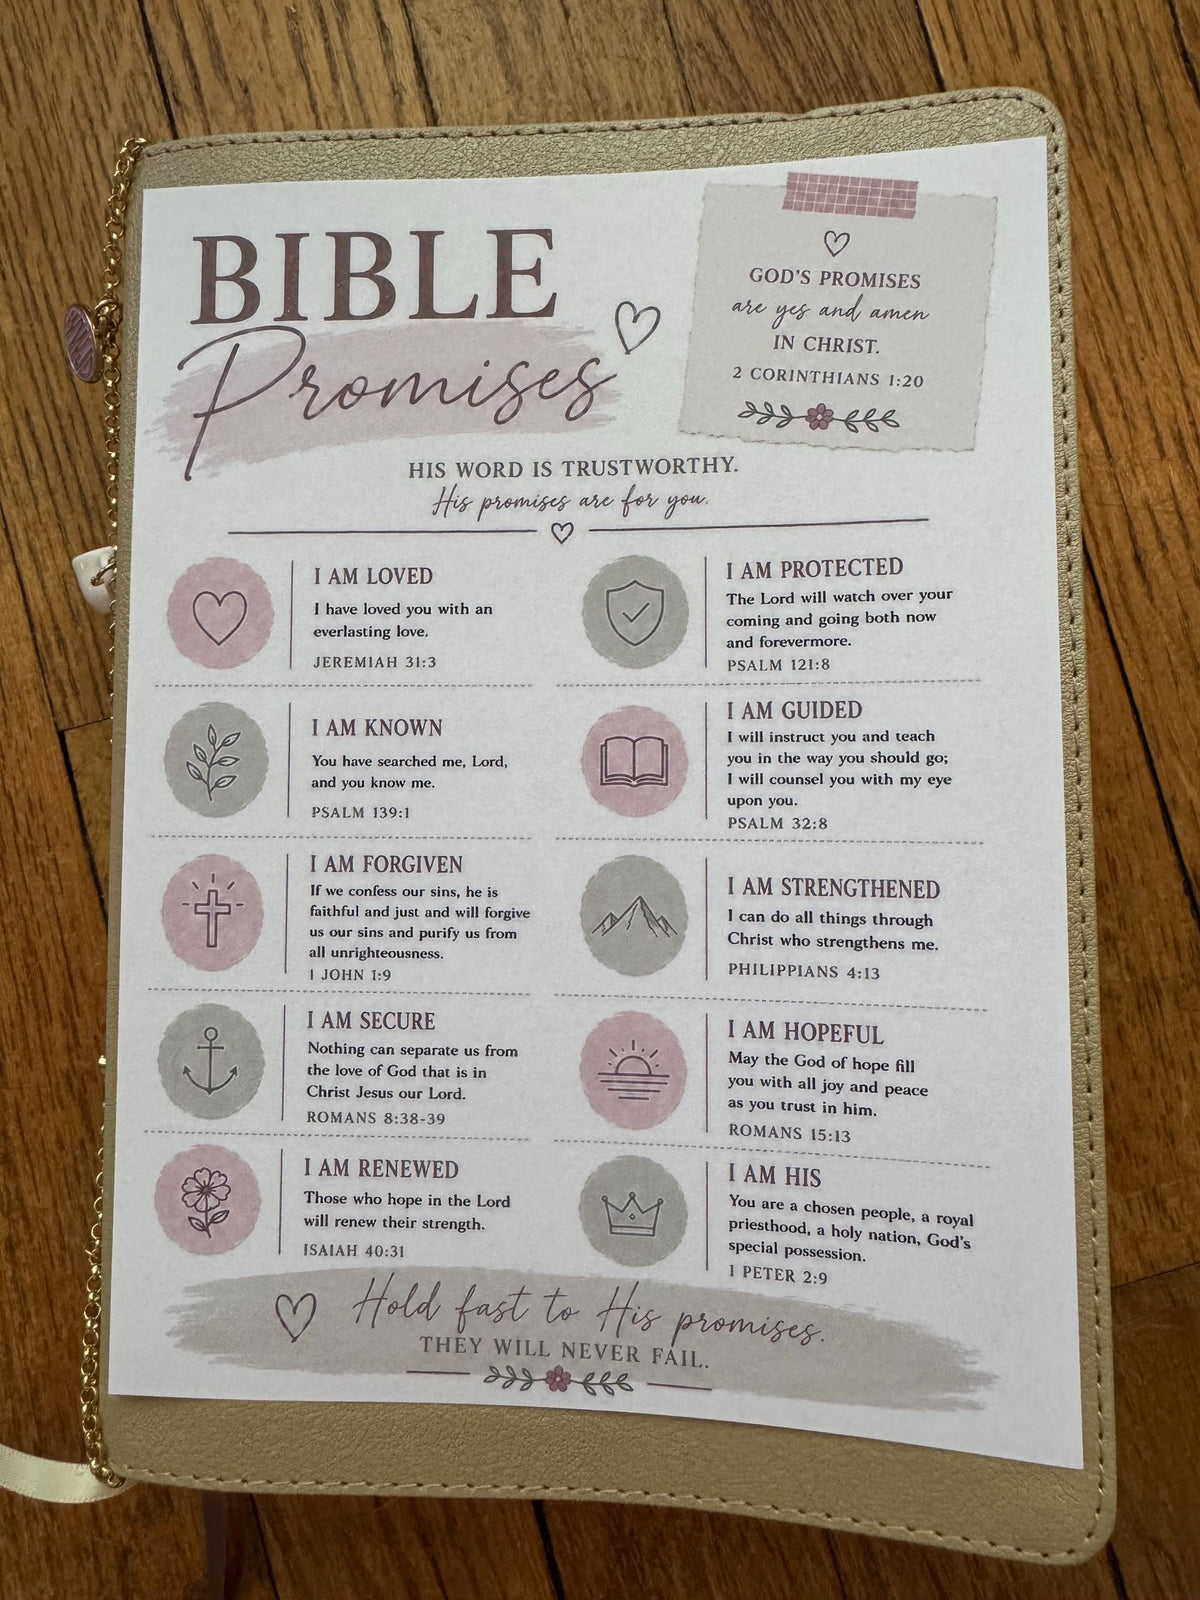 BIBLE
Promises
GOD'S PROMISES
are yes and amen
IN CHRIST.
2 CORINTHIANS 1:20
HIS WORD IS TRUSTWORTHY.
His promises are for you.
I AM LOVED
I have loved you with an
everlasting love.
JEREMIAH 31:3
I AM KNOWN
You have searched me, Lord,
and you know me.
PSALM 139:1
I AM FORGIVEN
If we confess our sins, he is
faithful and just and will forgive
us our sins and purify us from
all unrighteousness.
1 JOHN 1:9
I AM SECURE
Nothing can separate us from
the love of God that is in
Christ Jesus our Lord.
ROMANS 8:38-39
I AM RENEWED
Those who hope in the Lord
will renew their strength.
ISAIAH 40:31
I AM PROTECTED
The Lord will watch over your
coming and going both now
and forevermore.
PSALM 121:8
I AM GUIDED
I will instruct you and teach
you in the way you should go;
I will counsel you with my eye
upon you.
PSALM 32:8
I AM STRENGTHENED
I can do all things through
Christ who strengthens me.
PHILIPPIANS 4:13
I AM HOPEFUL
May the God of hope fill
you with all joy and peace
as you trust in him.
ROMANS 15:13
I AM HIS
You are a chosen people, a royal
priesthood, a holy nation, God's
special possession.
1 PETER 2:9
Hold fast to His promises.
THEY WILL NEVER FAIL.